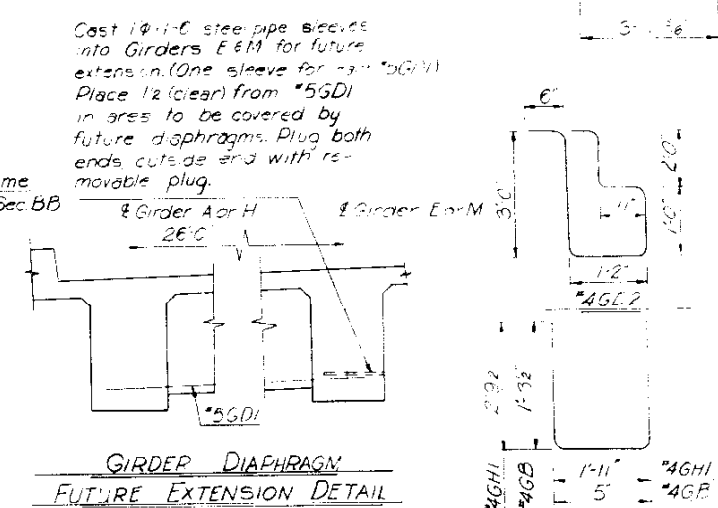 Cast 1"Φ 1'-0 steel pipe sleeves
into Girders E & M for future
extension. (One sleeve for #5GD1)
Place 1½ (clear) from #5GD1
in area to be covered by
future diaphragms. Plug both
ends, outside end with re-
movable plug.
me
Sec. BB
℄ Girder A or H
℄ Girder E or M
26'-0"
#5GD1
GIRDER DIAPHRAGM
FUTURE EXTENSION DETAIL
6"
3'-0"
2'-0"
1'-0"
11"
1'-2"
2'-9½
1'-3½
#4GH1
#4GB
1'-11" #4GH1
5" #4GB